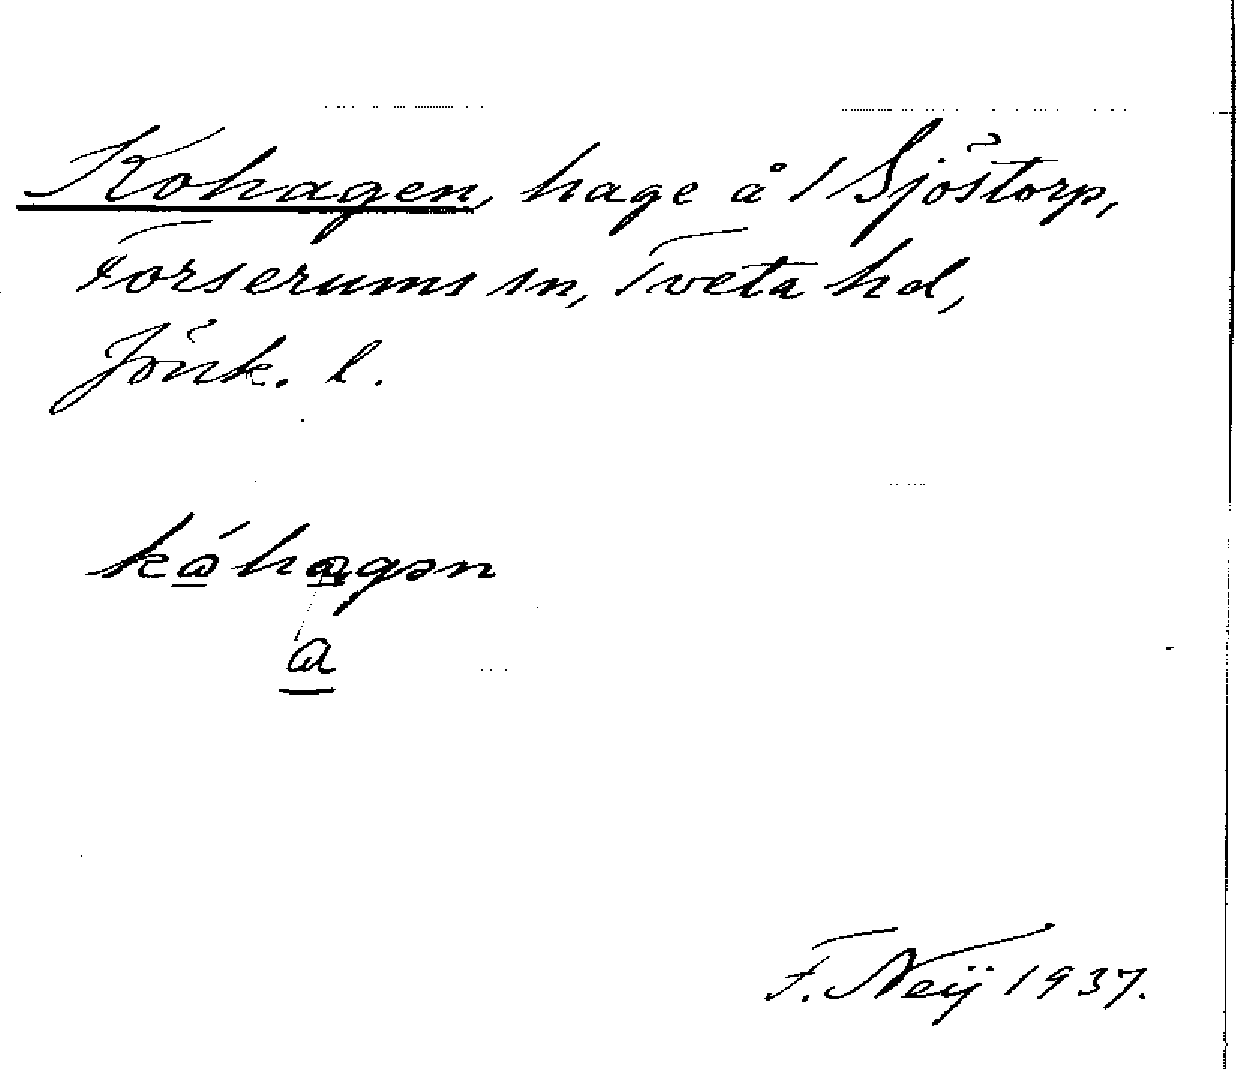 Kohagen, hage å 1 Sjöstorp,
Forserums sn, Tveta hd,
Jönk. l.
kɷ́hagən
a
F. Neij 1937.